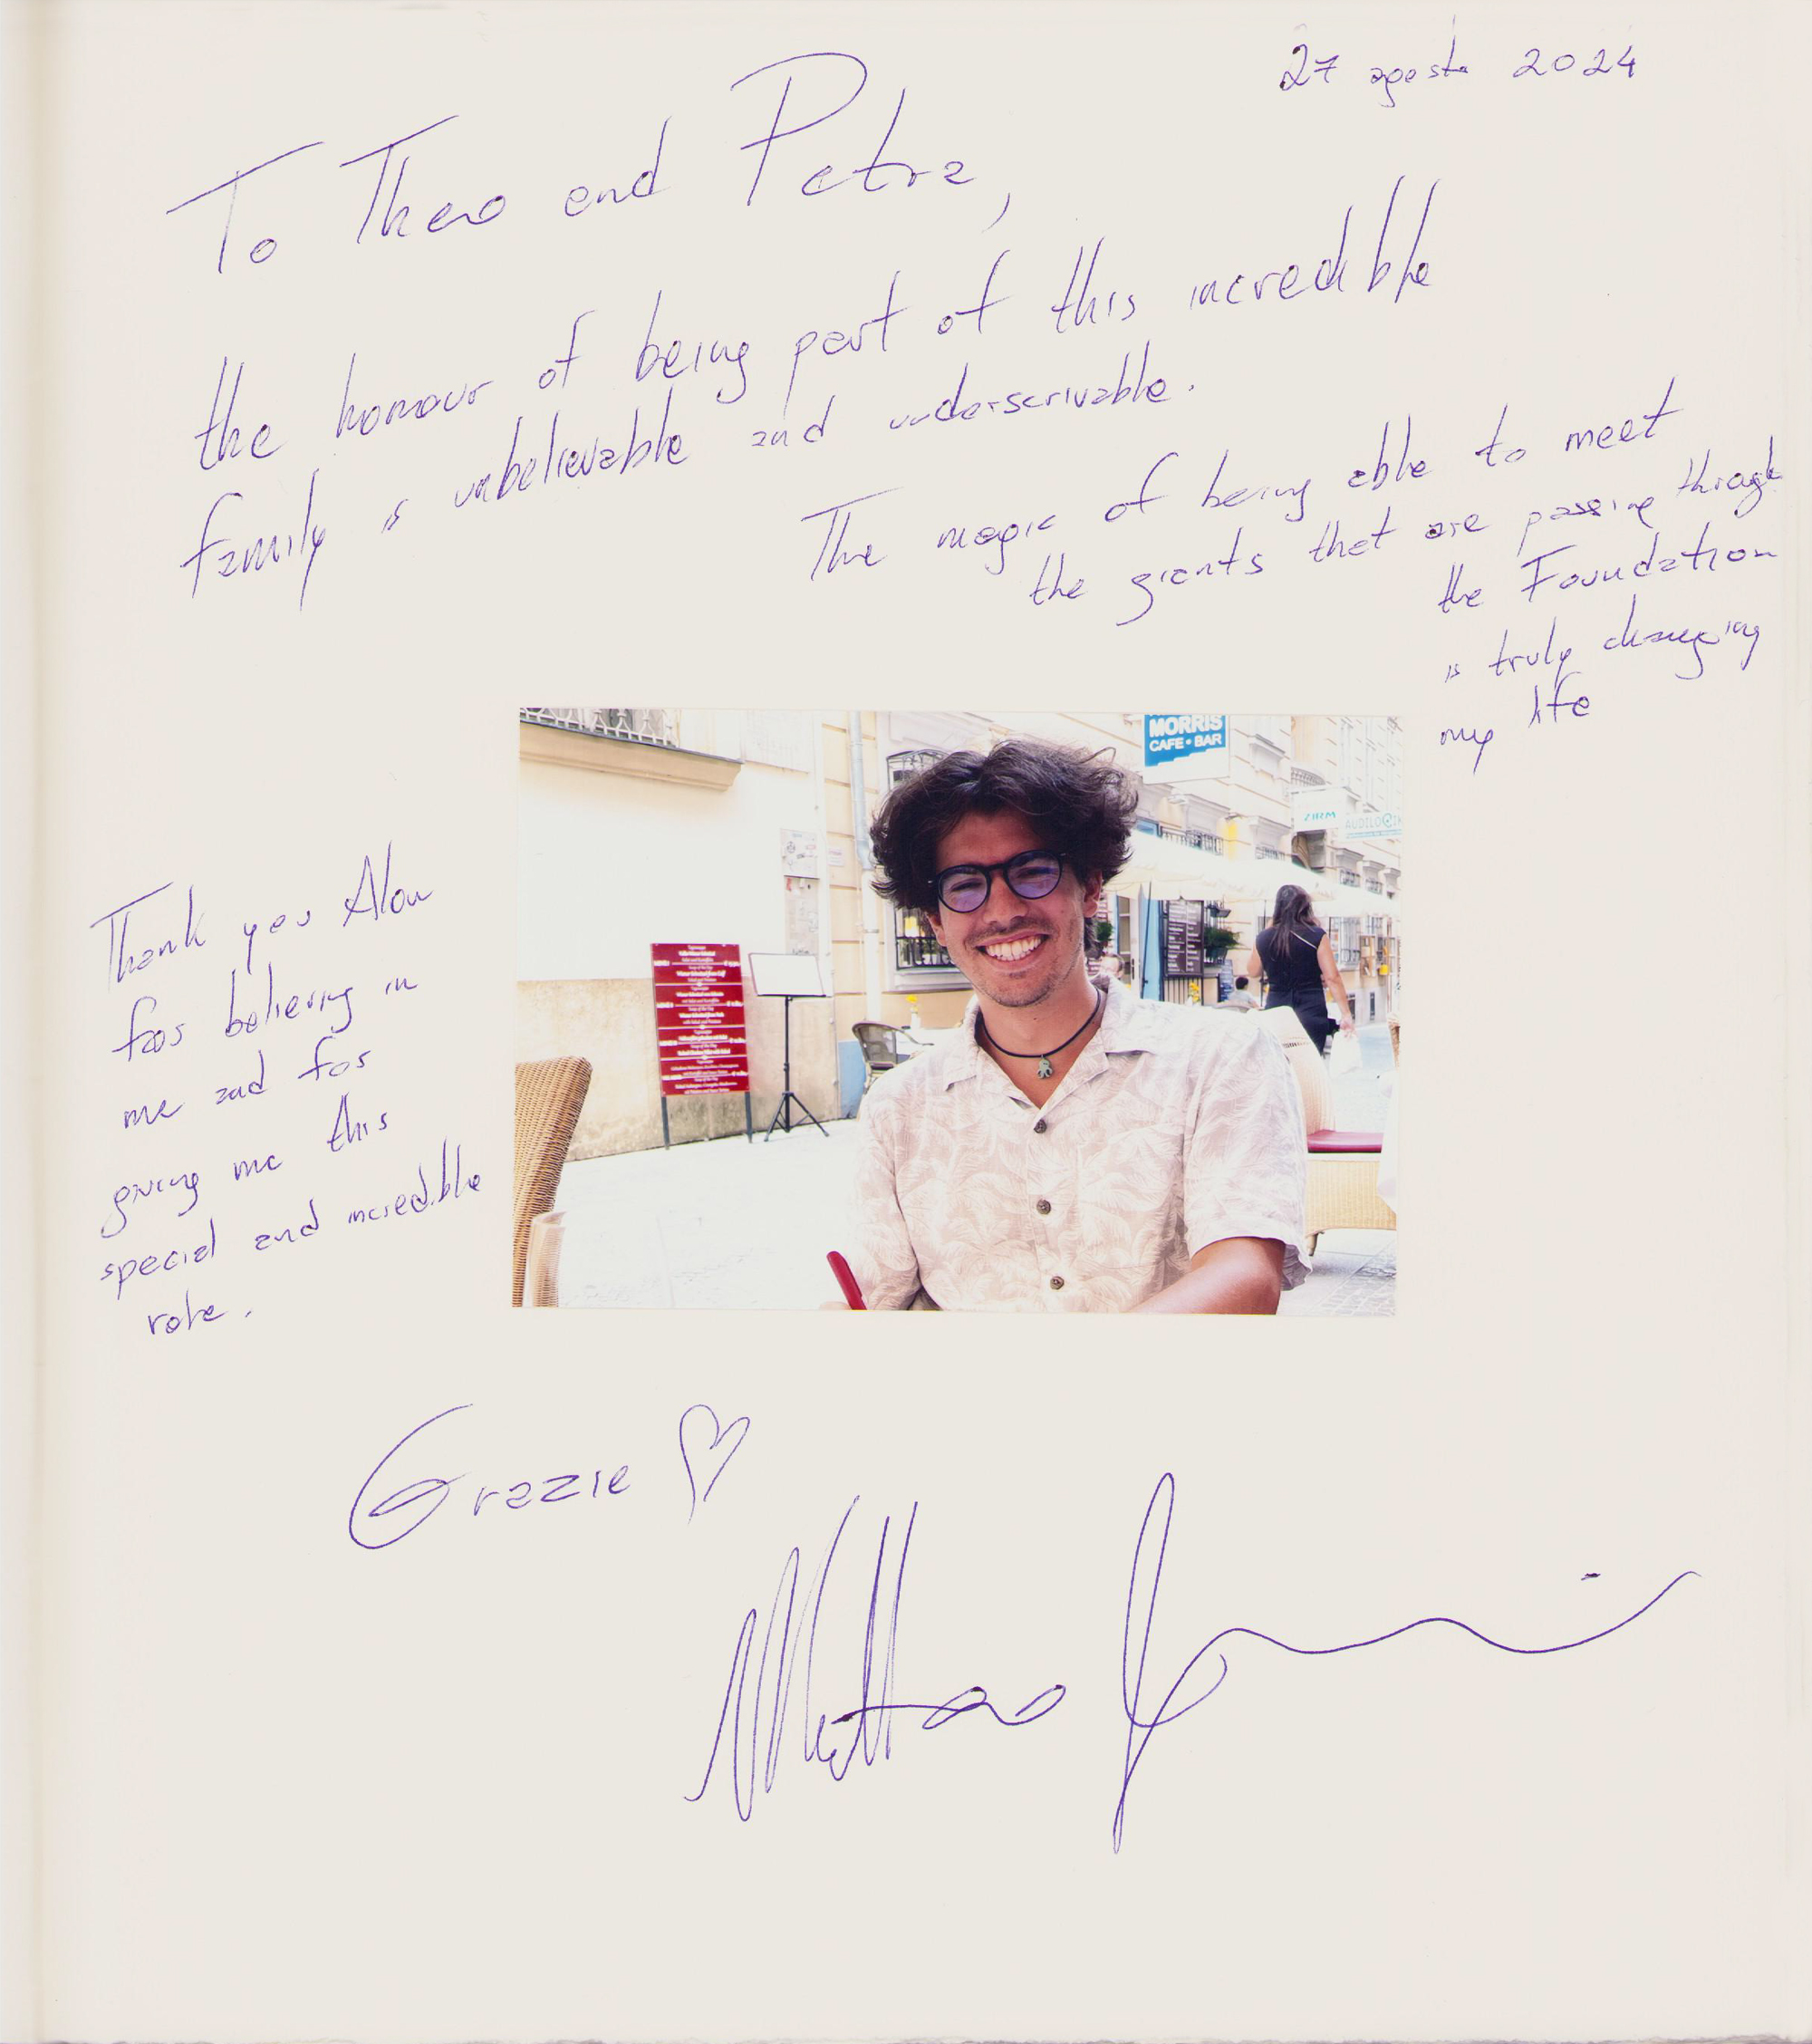 27 agosto 2024
To Theo and Petra,
the honour of being part of this incredible
family is unbelievable and underscrivable.
The magic of being able to meet
the giants that are passing through
the Foundation
is truly changing
my life
MORRIS
CAFE • BAR
ZIRM
AUDILOGIK
Thank you Alon
for believing in
me and for
giving me this
special and incredible
role.
Grazie
Matteo